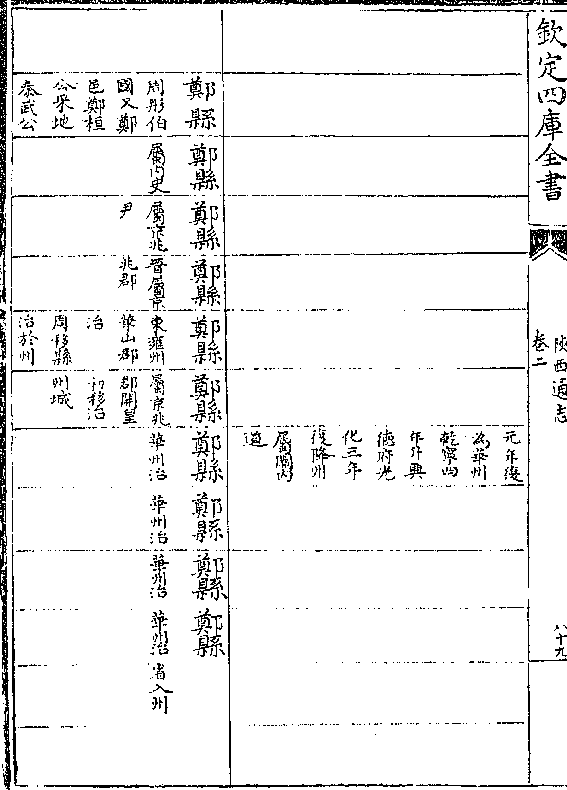 欽定四庫全書
陜西通志
卷二
八十九
元年復
為華州
乾寧四
年升興
德府光
化三年
復降州
屬關内
道
鄭縣
周彤伯
國又鄭
邑鄭桓
公采地
秦武公
鄭縣
屬内史
鄭縣
屬京兆
尹
鄭縣
晉屬京
兆郡
鄭縣
東雍州
華山郡
治
周移縣
治於州
鄭縣
屬京兆
郡開皇
初移治
州城
鄭縣
華州治
鄭縣
華州治
鄭縣
華州治
鄭縣
華州治
省入州